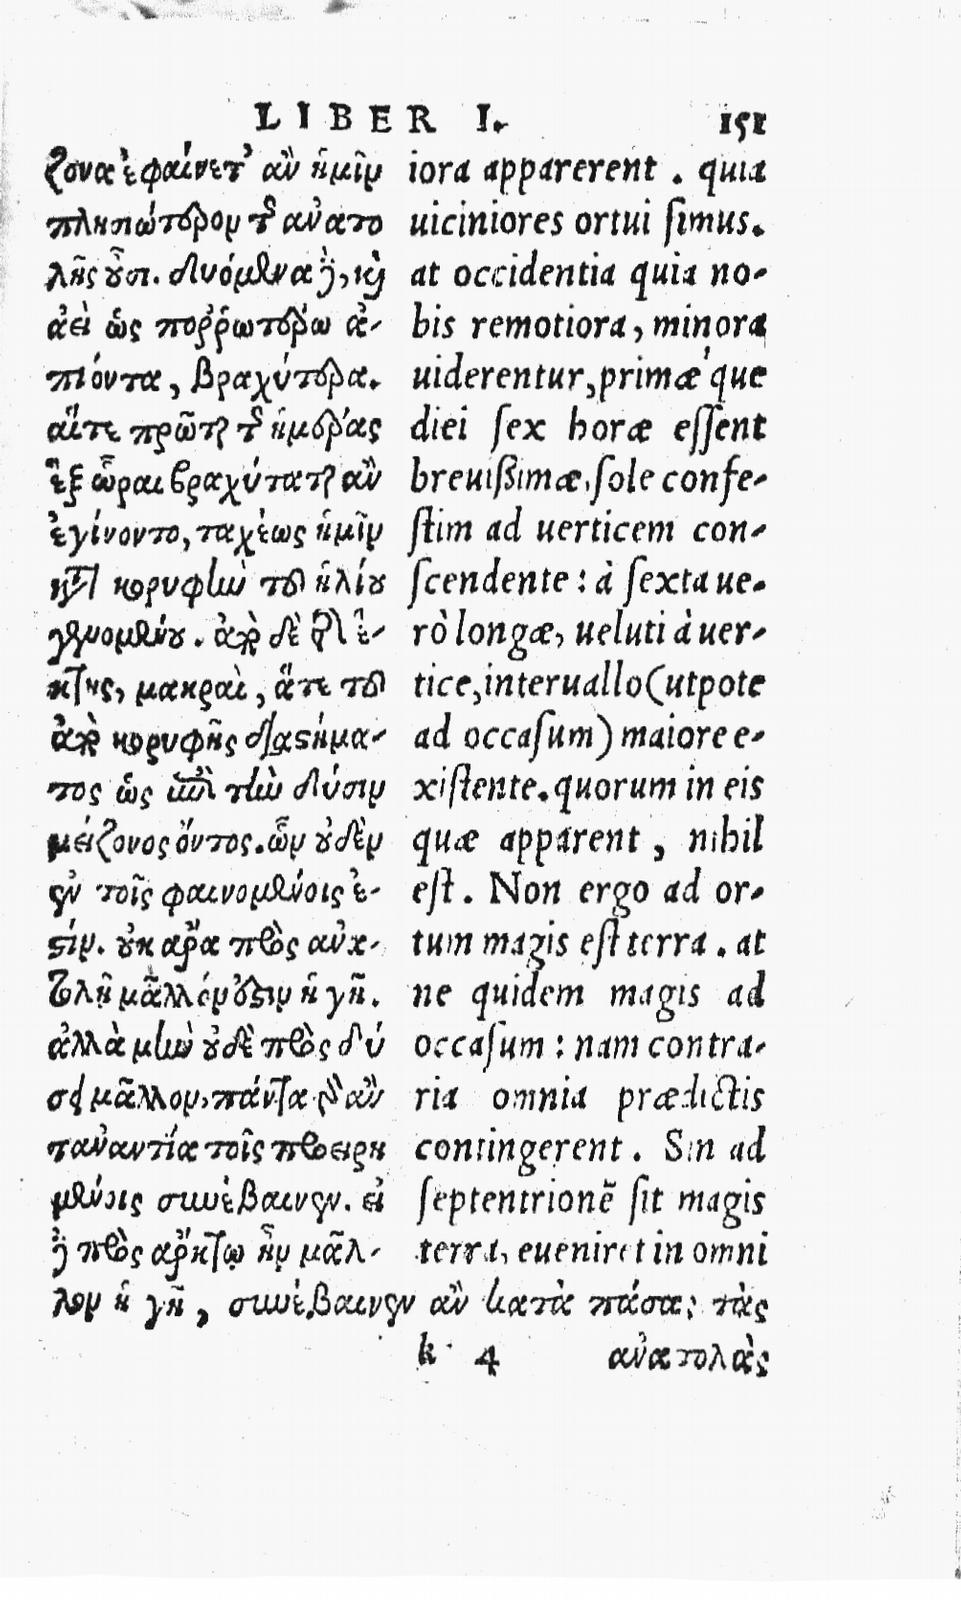 LIBER I. 151
ζονα ἐφαίνετ' ἂν ἡμῖν
πλησιώτερον τῆς ἀνατο
λῆς οὖσι. δυόμενα δὲ, καὶ
ἀεὶ ὡς πορῤῥωτέρω ἀ-
πιόντα, βραχύτερα.
αἵτε πρῶται τῆς ἡμέρας
ἓξ ὧραι βραχύταται ἂν
ἐγίνοντο, ταχέως ἡμῖν
κατὰ κορυφὴν τοῦ ἡλίου
γενομένου. ἀπὸ δὲ τῆς ἕ-
κτης, μακραὶ, ἅτε τοῦ
ἀπὸ κορυφῆς διαστήμα-
τος ὡς ἐπὶ τὴν δύσιν
μείζονος ὄντος. ὧν οὐδὲν
ἐν τοῖς φαινομένοις ἐ-
στίν. οὐκ ἄρα πρὸς ἀνα-
τολῇ μᾶλλόν ἐστιν ἡ γῆ.
ἀλλὰ μὴν οὐδὲ πρὸς δύ
σει μᾶλλον, πάντα γὰρ ἂν
τἀναντία τοῖς προειρη
μένοις συνέβαινεν. εἰ
δὲ πρὸς ἄρκτῳ ἦν μᾶλ-
λον ἡ γῆ, συνέβαινεν ἂν κατὰ πάσας τὰς
iora apparerent. quia
uiciniores ortui ſimus.
at occidentia quia no-
bis remotiora, minora
uiderentur, primæ'que
diei ſex horæ eſſent
breuiſsimæ, ſole confe-
ſtim ad uerticem con-
ſcendente: à ſexta ue-
rò longæ, ueluti à uer-
tice, interuallo (utpote
ad occaſum) maiore e-
xiſtente. quorum in eis
quæ apparent, nihil
eſt. Non ergo ad or-
tum magis eſt terra. at
ne quidem magis ad
occaſum: nam contra-
ria omnia prædictis
contingerent. Sin ad
ſeptentrionẽ ſit magis
terra, eueniret in omni
k 4 ἀνατολὰς